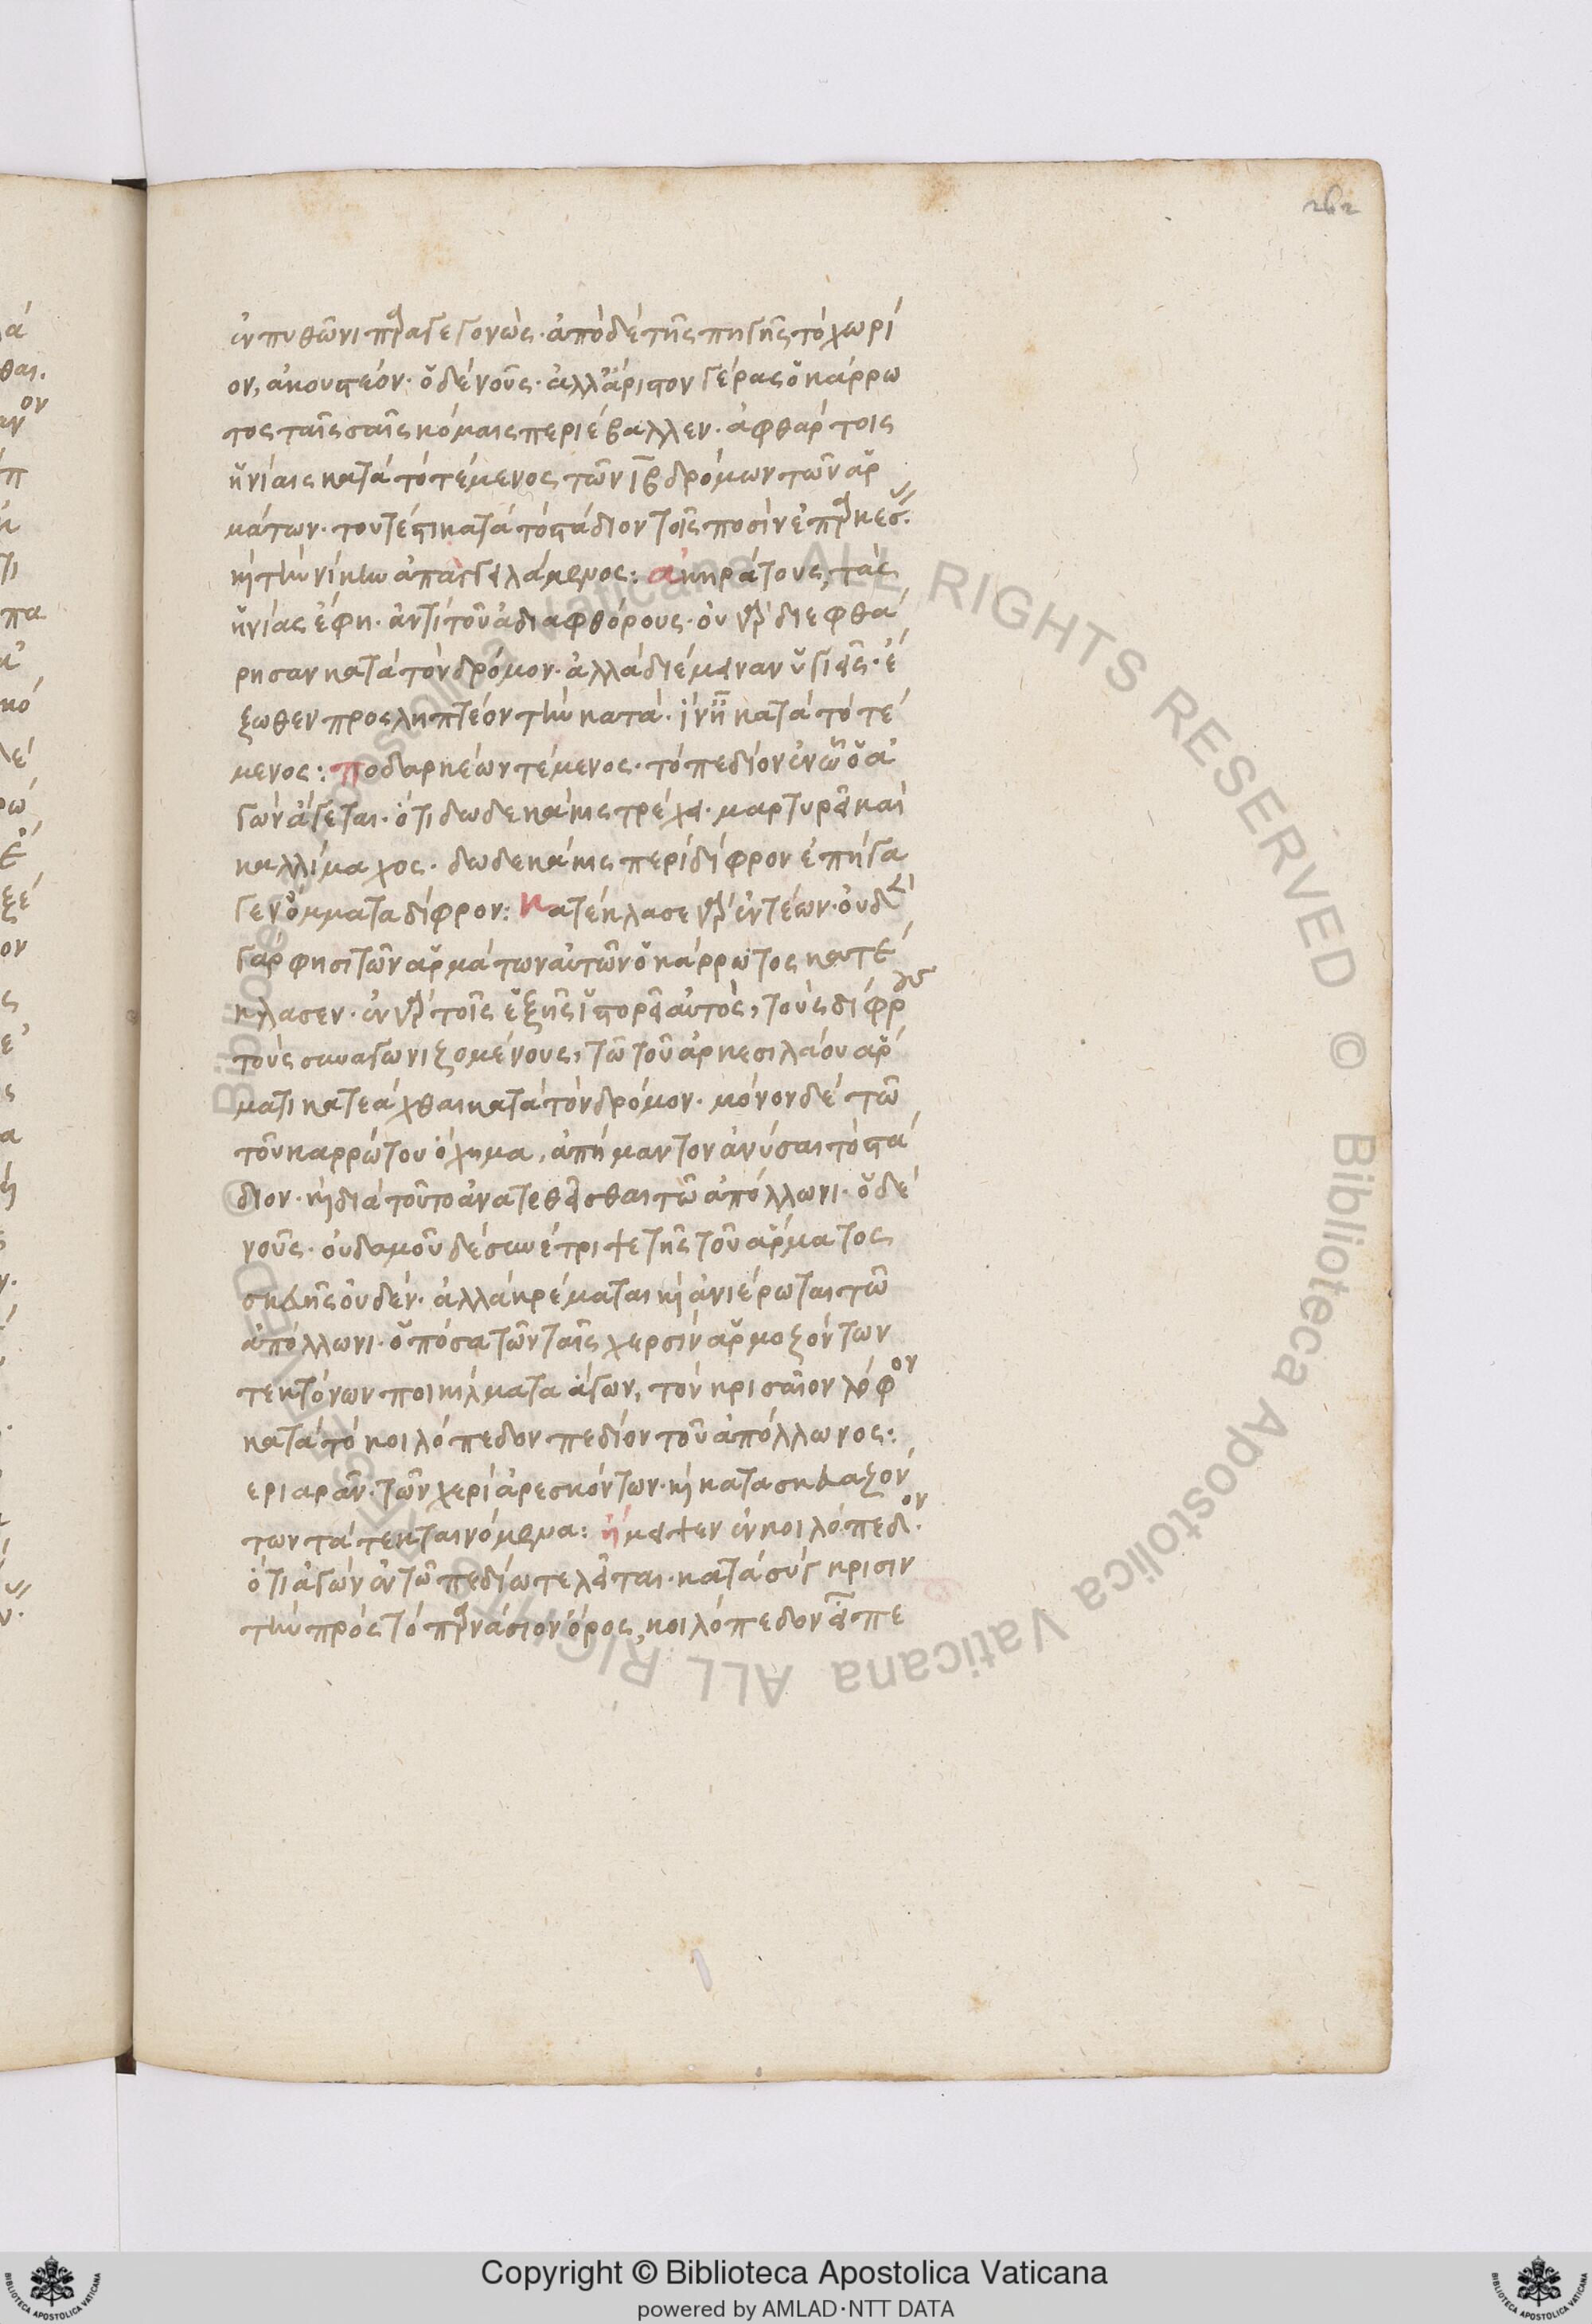 262
ἐν πυθῶνι παραγεγονώς· ἀπὸ δὲ τῆς πηγῆς τὸ χωρί
ον, ἀκουστέον· ὁ δὲ νοῦς· ἀλλ' ἄριστον γέρας ὁ κάρρω
τος ταῖς σαῖς κόμαις περιέβαλλεν· ἀφθάρτοις
ἡνίαις κατὰ τὸ τέμενος τῶν ιβ δρόμων τῶν ἁρ
μάτων· τουτέστι κατὰ τὸ στάδιον τοῖς ποσὶν
κὴ τὴν νίκην ἀπαγγειλάμενος: ἀκηράτους, τὰς
ἡνίας ἔφη· ἀντὶ τοῦ ἀδιαφθόρους· οὐ γὰρ διεφθά
ρησαν κατὰ τὸν δρόμον· ἀλλὰ διέμειναν ὑγιεῖς· ἔ
ξωθεν προσληπτέον τὴν κατά· ἵν' ᾖ κατὰ τὸ τέ
μενος: ποδαρκέων τέμενος· τὸ πεδίον ἐν ᾧ ὁ ἀ
γὼν ἄγεται· ὅτι δωδεκάκις τρέχει· μαρτυρεῖ καὶ
καλλίμαχος· δωδεκάκις περὶ δίφρον ἐπήγα
γεν ὄμματα δίφρον: κατέκλασε γὰρ ἐντέων· οὐδὲν
γάρ φησι τῶν ἁρμάτων αὐτῶν ὁ κάρρωτος κατέ
κλασεν· ἐν γὰρ τοῖς ἑξῆς ἱστορεῖ αὐτὸς, τοὺς δίφρους
τοὺς συναγωνιζομένους, τῷ τοῦ ἀρκεσιλάου ἅρ
ματι κατεάχθαι κατὰ τὸν δρόμον· μόνον δὲ τῷ
τοῦ καρρώτου ὄχημα, ἀπήμαντον ἀνύσαι τὸ στά
διον· κὴ διὰ τοῦτο ἀνατεθεῖσθαι τῷ ἀπόλλωνι· ὁ δὲ
νοῦς· οὐδαμοῦ δὲ συνέτριψε τῆς τοῦ ἅρματος
σκευῆς οὐδέν· ἀλλὰ κρέμαται κὴ ἀνιέρωται τῷ
ἀπόλλωνι· ὁπόσα τῶν ταῖς χερσὶν ἁρμοζόντων
τεκτόνων ποικίλματα ἄγων, τὸν κρισαῖον λόφον
κατὰ τὸ κοιλόπεδον πεδίον τοῦ ἀπόλλωνος:
εριαρᾶν· τῶν χερὶ ἀρεσκόντων· κὴ κατασκευαζόν
των τὰ τεκταινόμενα: ἤμειψεν ἐν κοιλόπεδον·
ὅτι ἀγὼν ἐν τῷ πεδίῳ τελεῖται· κατὰ σύγκρισιν
τὴν πρὸς τὸ παρνάσιον ὄρος, κοιλόπεδον εἶπε
Copyright © Biblioteca Apostolica Vaticana
powered by AMLAD·NTT DATA